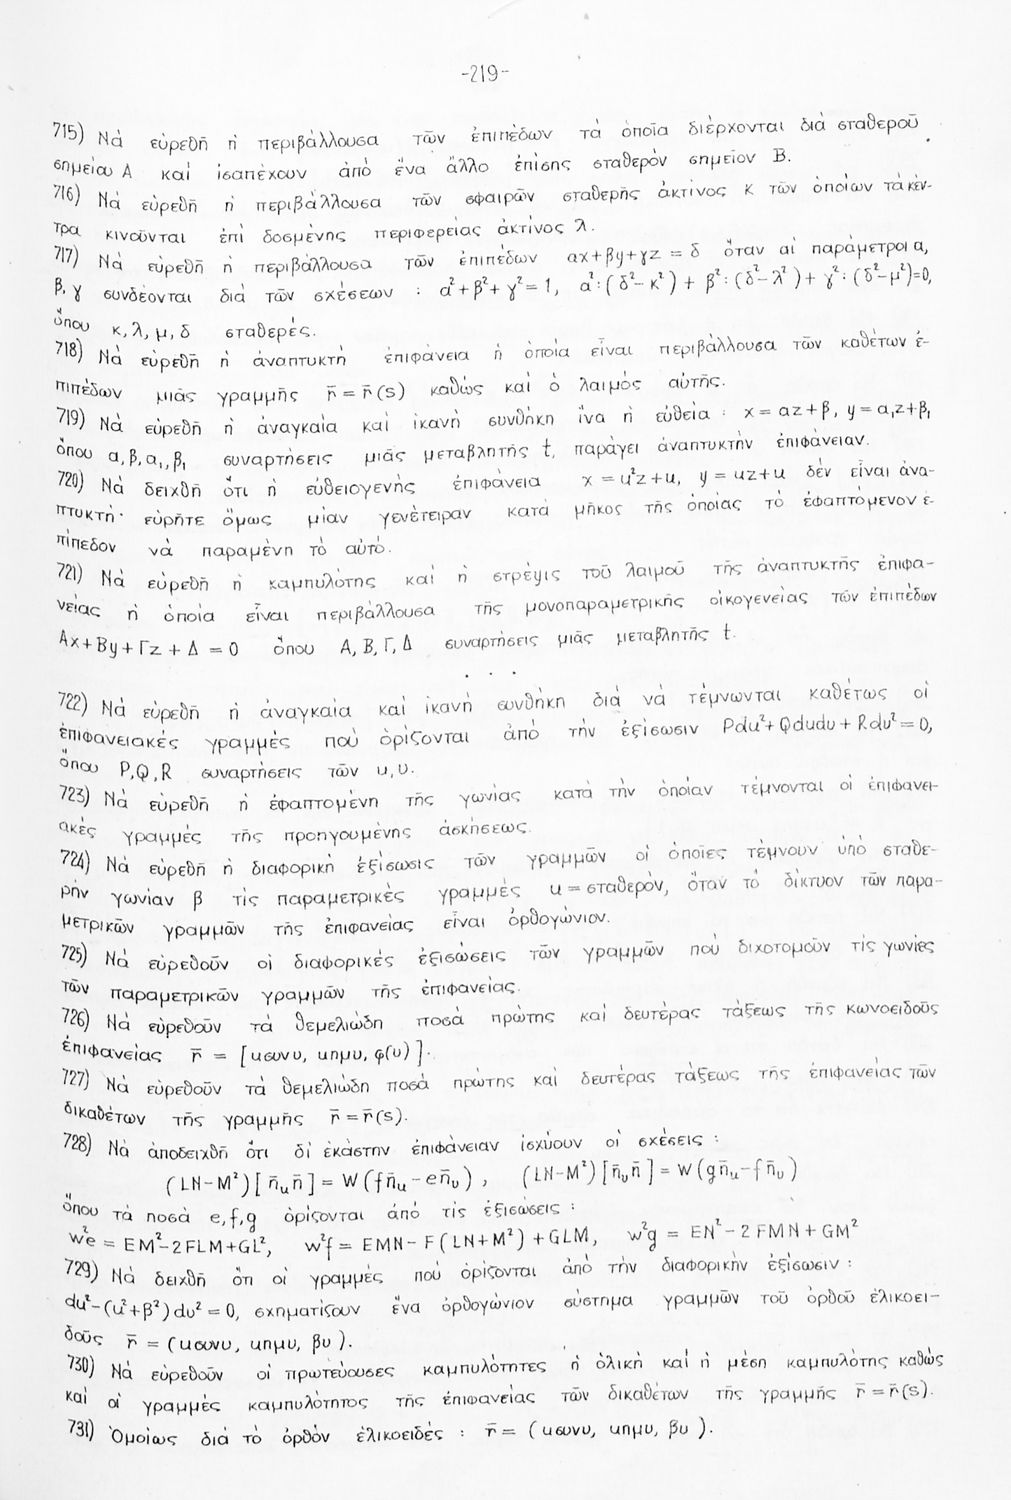 -219-
715) Νὰ εὑρεθῇ ἡ περιβάλλουσα τῶν ἐπιπέδων τὰ ὁποῖα διέρχονται διὰ σταθεροῦ
σημείου Α καὶ ἰσαπέχουν ἀπὸ ἕνα ἄλλο ἐπίσης σταθερὸν σημεῖον Β.
716) Νὰ εὑρεθῇ ἡ περιβάλλουσα τῶν σφαιρῶν σταθερῆς ἀκτίνος κ τῶν ὁποίων τὰ κέν-
τρα κινοῦνται ἐπὶ δοσμένης περιφερείας ἀκτίνος λ.
717) Νὰ εὑρεθῇ ἡ περιβάλλουσα τῶν ἐπιπέδων αx+βy+γz = δ ὅταν αἱ παράμετροι α,
β, γ συνδέονται διὰ τῶν σχέσεων : α²+β²+γ²=1, α²:(δ²-κ²) + β²:(δ²-λ²) + γ²:(δ²-μ²)=0,
ὅπου κ, λ, μ, δ σταθερές.
718) Νὰ εὑρεθῇ ἡ ἀναπτυκτὴ ἐπιφάνεια ἡ ὁποία εἶναι περιβάλλουσα τῶν καθέτων ἐ-
πιπέδων μιᾶς γραμμῆς r̄ = r̄(s) καθὼς καὶ ὁ λαιμὸς αὐτῆς.
719) Νὰ εὑρεθῇ ἡ ἀναγκαία καὶ ἱκανὴ συνθήκη ἵνα ἡ εὐθεία : x = αz+β, y = α₁z+β₁
ὅπου α, β, α₁, β₁ συναρτήσεις μιᾶς μεταβλητῆς t, παράγει ἀναπτυκτὴν ἐπιφάνειαν.
720) Νὰ δειχθῇ ὅτι ἡ εὐθειογενὴς ἐπιφάνεια x = u²z+u, y = uz+u δὲν εἶναι ἀνα-
πτυκτή· εὑρῆτε ὅμως μίαν γενέτειραν κατὰ μῆκος τῆς ὁποίας τὸ ἐφαπτόμενον ἐ-
πίπεδον νὰ παραμένη τὸ αὐτό.
721) Νὰ εὑρεθῇ ἡ καμπυλότης καὶ ἡ στρέψις τοῦ λαιμοῦ τῆς ἀναπτυκτῆς ἐπιφα-
νείας ἡ ὁποία εἶναι περιβάλλουσα τῆς μονοπαραμετρικῆς οἰκογενείας τῶν ἐπιπέδων
Αx+Βy+Γz+Δ = 0 ὅπου Α, Β, Γ, Δ συναρτήσεις μιᾶς μεταβλητῆς t.
. . .
722) Νὰ εὑρεθῇ ἡ ἀναγκαία καὶ ἱκανὴ συνθήκη διὰ νὰ τέμνωνται καθέτως οἱ
ἐπιφανειακὲς γραμμὲς ποὺ ὁρίζονται ἀπὸ τὴν ἐξίσωσιν Pdu²+Qdudυ+Rdυ²=0,
ὅπου P,Q,R συναρτήσεις τῶν u,υ.
723) Νὰ εὑρεθῇ ἡ ἐφαπτομένη τῆς γωνίας κατὰ τὴν ὁποίαν τέμνονται οἱ ἐπιφανει-
ακὲς γραμμὲς τῆς προηγουμένης ἀσκήσεως.
724) Νὰ εὑρεθῇ ἡ διαφορικὴ ἐξίσωσις τῶν γραμμῶν οἱ ὁποῖες τέμνουν ὑπὸ σταθε-
ρὴν γωνίαν β τὶς παραμετρικὲς γραμμὲς u = σταθερόν, ὅταν τὸ δίκτυον τῶν παρα-
μετρικῶν γραμμῶν τῆς ἐπιφανείας εἶναι ὀρθογώνιον.
725) Νὰ εὑρεθοῦν οἱ διαφορικὲς ἐξισώσεις τῶν γραμμῶν ποὺ διχοτομοῦν τὶς γωνίες
τῶν παραμετρικῶν γραμμῶν τῆς ἐπιφανείας.
726) Νὰ εὑρεθοῦν τὰ θεμελιώδη ποσὰ πρώτης καὶ δευτέρας τάξεως τῆς κωνοειδοῦς
ἐπιφανείας r̄ = [uσυνυ, uημυ, φ(υ)].
727) Νὰ εὑρεθοῦν τὰ θεμελιώδη ποσὰ πρώτης καὶ δευτέρας τάξεως τῆς ἐπιφανείας τῶν
δικαθέτων τῆς γραμμῆς r̄ = r̄(s).
728) Νὰ ἀποδειχθῇ ὅτι δι' ἑκάστην ἐπιφάνειαν ἰσχύουν οἱ σχέσεις :
(LN-M²)[n̄ᵤn̄] = W(fn̄ᵤ-en̄ᵥ), (LN-M²)[n̄ᵥn̄] = W(gn̄ᵤ-fn̄ᵥ)
ὅπου τὰ ποσὰ e,f,g ὁρίζονται ἀπὸ τὶς ἐξισώσεις :
w²e = EM²-2FLM+GL², w²f = EMN-F(LN+M²)+GLM, w²g = EN²-2FMN+GM²
729) Νὰ δειχθῇ ὅτι οἱ γραμμὲς ποὺ ὁρίζονται ἀπὸ τὴν διαφορικὴν ἐξίσωσιν :
du²-(u²+β²)dυ²=0, σχηματίζουν ἕνα ὀρθογώνιον σύστημα γραμμῶν τοῦ ὀρθοῦ ἑλικοει-
δοῦς r̄ = (uσυνυ, uημυ, βυ).
730) Νὰ εὑρεθοῦν οἱ πρωτεύουσες καμπυλότητες ἡ ὁλικὴ καὶ ἡ μέση καμπυλότης καθὼς
καὶ αἱ γραμμὲς καμπυλότητος τῆς ἐπιφανείας τῶν δικαθέτων τῆς γραμμῆς r̄ = r̄(s).
731) Ὁμοίως διὰ τὸ ὀρθὸν ἑλικοειδές : r̄ = (uσυνυ, uημυ, βυ).